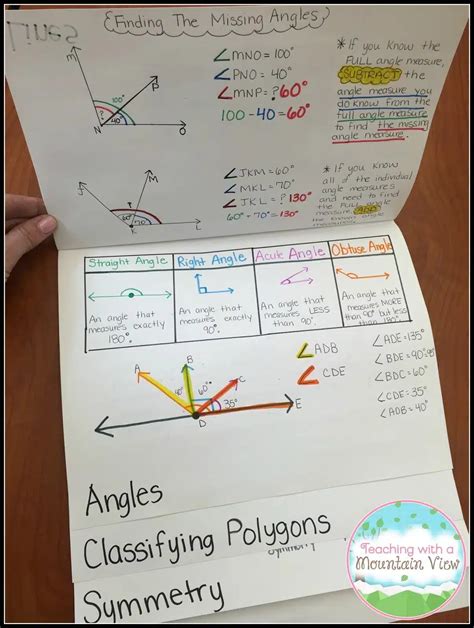 Lines
{Finding The Missing Angles}
M
P
100°
?
40°
N
O
∠MNO = 100°
∠PNO = 40°
∠MNP = ? 60°
100 - 40 = 60°
* If you know the
FULL angle measure,
SUBTRACT the
angle measure you
do know from the
full angle measure
to find the missing
angle measure.
J
M
60°
70°
K
L
∠JKM = 60°
∠MKL = 70°
∠JKL = ? 130°
60° - 70° = 130°
* If you know
all of the individual
angle measures
and need to find
the FULL angle
measure ADD
Straight Angle
Right Angle
Acute Angle
Obtuse Angle
An angle that
measures exactly
180°.
An angle that
measures exactly
90°.
An angle that
measures LESS
than 90°.
An angle that
measures MORE
than 90° but less
than 180°.
A
B
C
D
E
40°
60°
35°
∠ADB
∠CDE
∠ADE = 135°
∠BDE = 90°
∠BDC = 60°
∠CDE = 35°
∠ADB = 40°
Angles
Classifying Polygons
Symmetry
Symmetry
Teaching with a
Mountain View